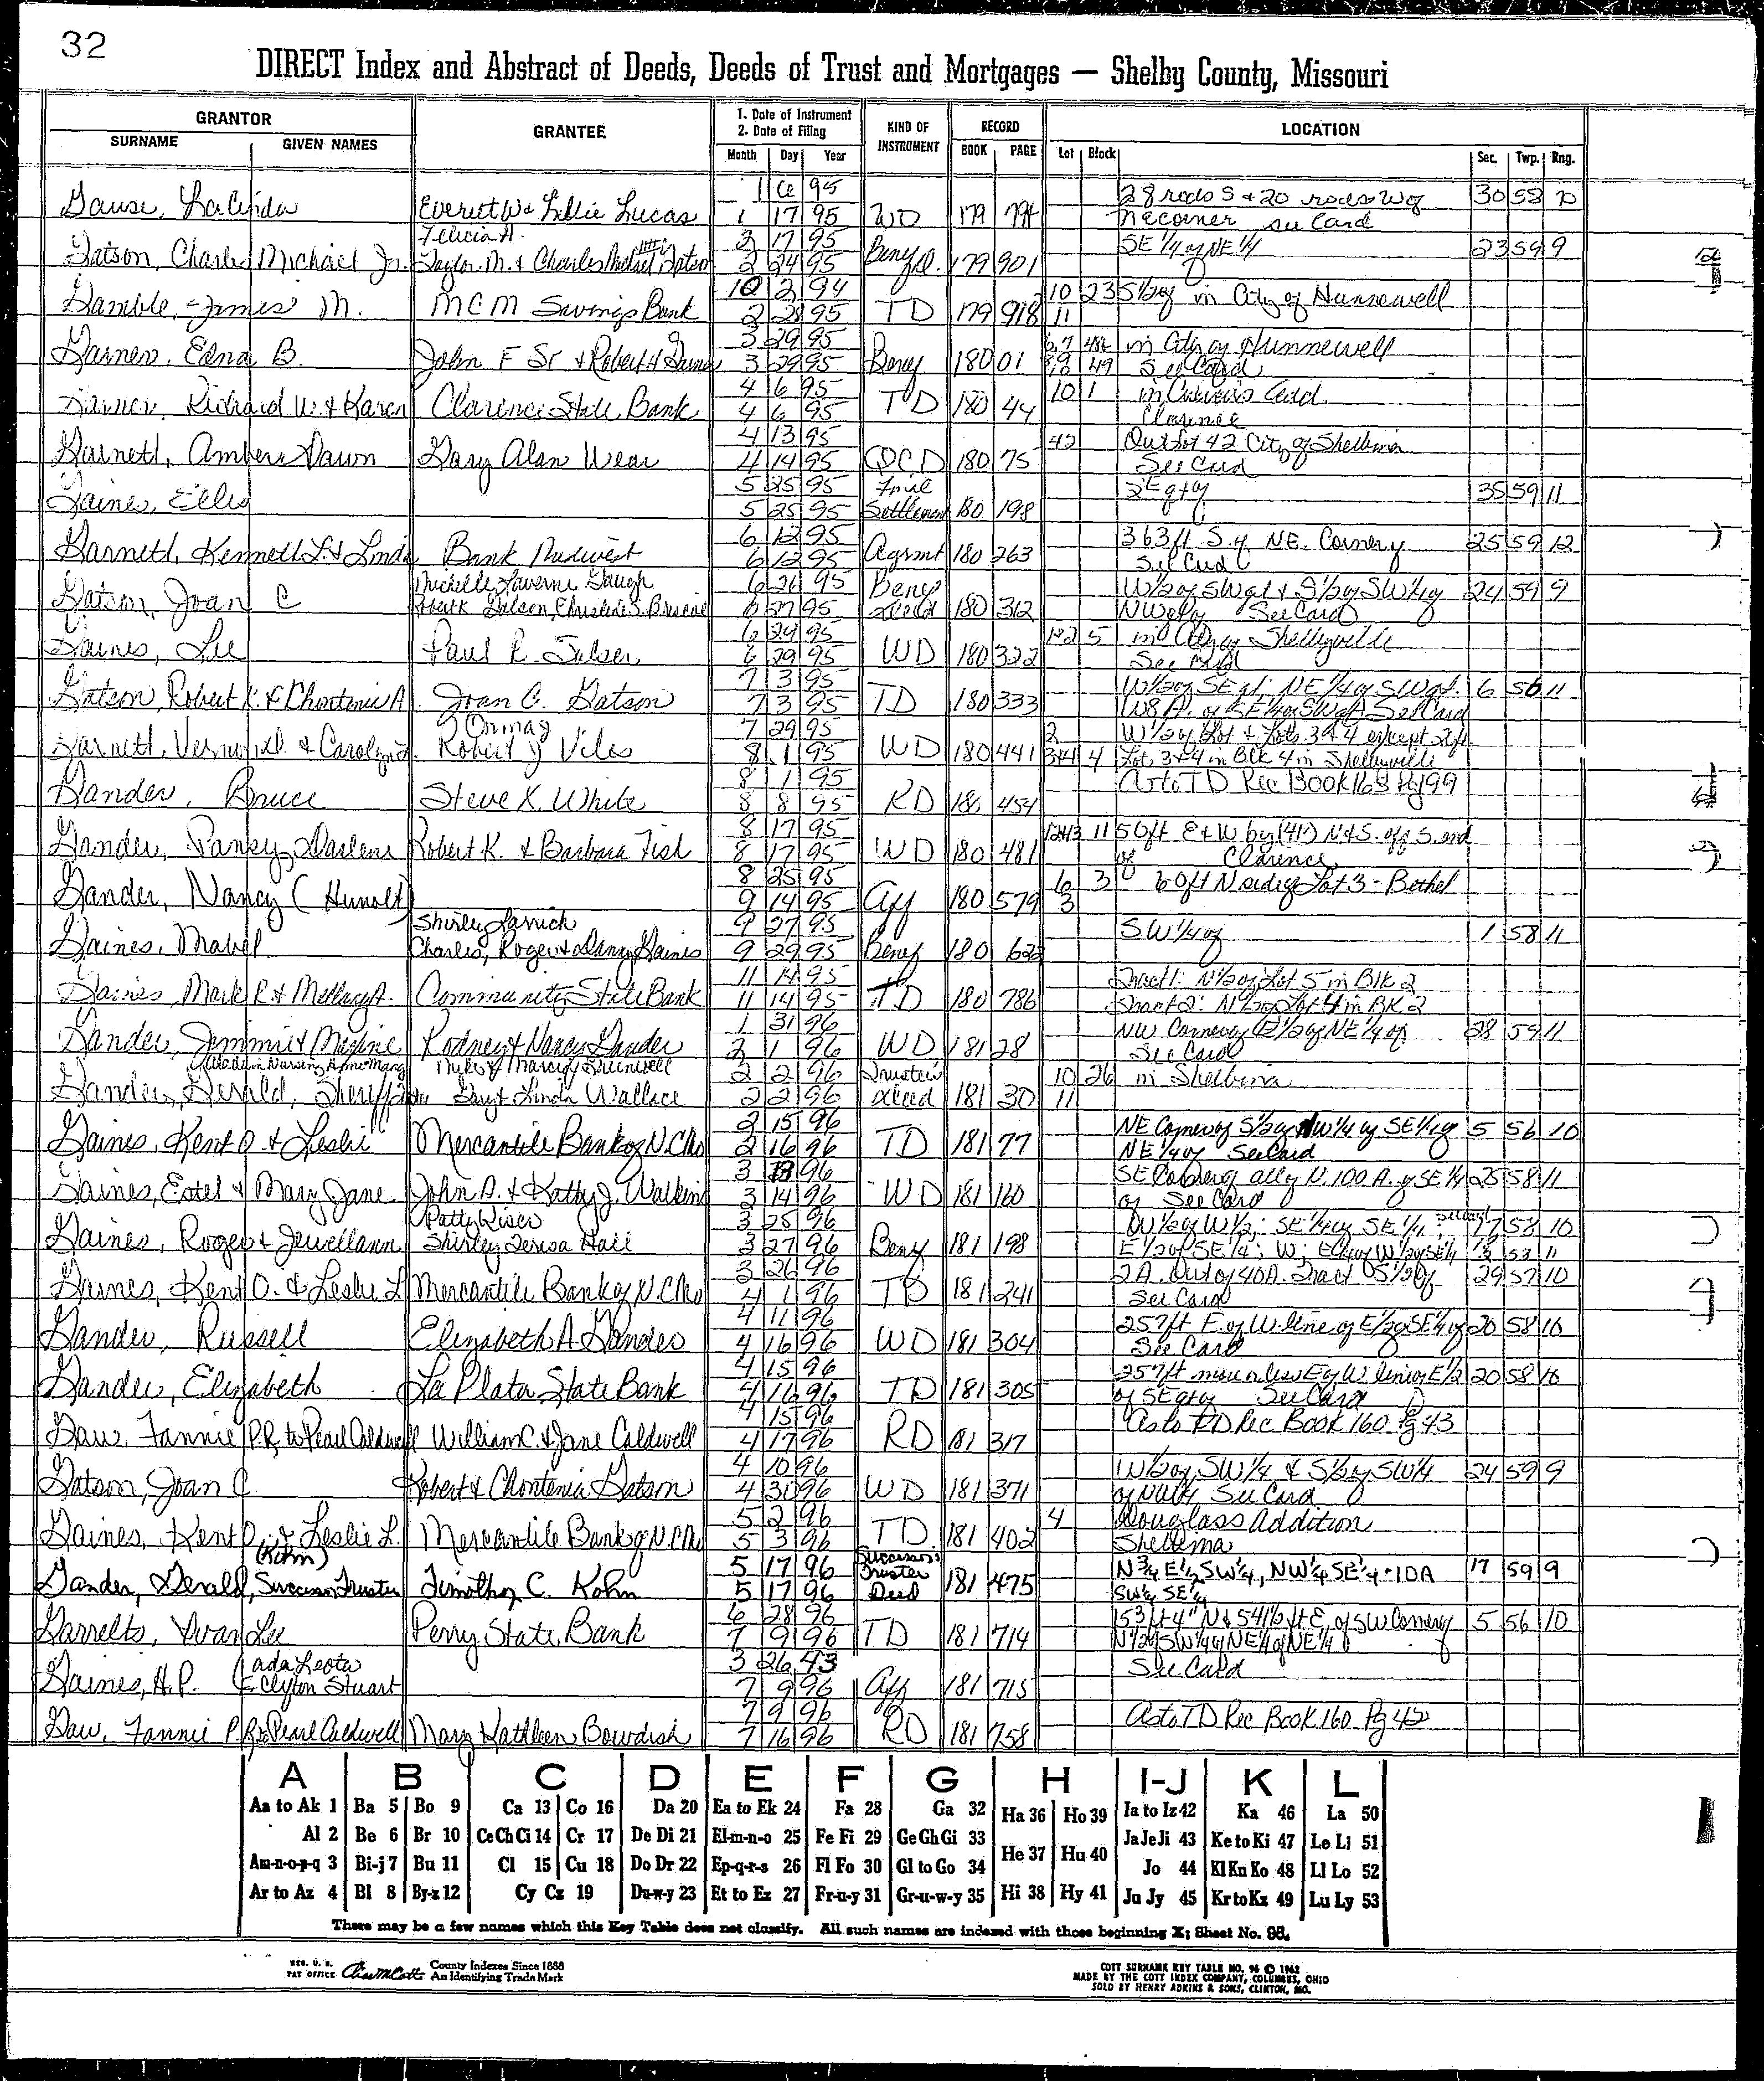 32
DIRECT Index and Abstract of Deeds, Deeds of Trust and Mortgages — Shelby County, Missouri
GRANTOR
SURNAME GIVEN NAMES
GRANTEE
1. Date of Instrument
2. Date of Filing
Month Day Year
KIND OF INSTRUMENT
RECORD
BOOK PAGE
LOCATION
Lot Block Sec. Twp. Rng.
1 95 28 rods S & 20 rods W of 30 58
Gause, Everett W & Lillie Lucas 1 17 95 WD 179 NE corner See Card
Felicia A. 3 17 95 SE 1/4 of NE 1/4 23 59 9
Gatson, Charles Michael Jr. Taylor M. & Charles Michael Gatson 2 24 95 Benef D. 179 901
10 2 94 10 23 S 1/2 of in City of Hunnewell
Gamble, James M. MCM Savings Bank 2 28 95 TD 179 918 11
3 29 95 6,7 in City of Hunnewell
Garner, Edna B. John F Sr & Robert H 3 29 95 Benef 180 01 49 See Card
4 6 95 10 1 in Add.
Richard W. & Karen Clarence State Bank 4 6 95 TD 180 44 Clarence
4 13 95 42 Outlot 42 City of Shelbina
Garnett, Amber Dawn Gary Alan Wear 4 14 95 QCD 180 75 See Card
5 25 95 SE qr of 35 59 11
Gaines, Ellis 5 25 95 Settlement 180 198
6 12 95 363 ft. S. of NE. Corner of 25 59 12
Garnett, Kenneth L. & Linda Bank Midwest 6 12 95 Agrmt 180 263 See Card
Michelle Laverne Gaugh 6 26 95 Benef W 1/2 of SW qr & S 1/2 of SW 1/4 of 24 59 9
Gatson, Joan C Gatson, Christine S. 6 27 95 Deed 180 312 NW qr of See Card
6 29 95 5 in City of Shelbyville
Gaines, Lee Paul R. 6 29 95 WD 180 322 See Card
7 3 95 W 1/2 of SE qr; NE 1/4 of SW qr. 6 56 11
Gatson, Robert K. & Chontenia A. Joan C. Gatson 7 3 95 TD 180 333 W8 A. of SE 1/4 of SW qr See Card
7 29 95 2 W 1/2 of Lot & Lots 3 & 4 except
Garnett, & Carolyn Robert J Viles 8 1 95 WD 180 441 3&4 4 Lot 3 & 4 in Blk 4 in Shelbyville
8 1 95 As to TD Rec Book 168 Pg 99
Gander, Bruce Steve K. White 8 8 95 RD 180 454
8 17 95 11 50 ft E & W by (41') N & S. off S. end
Gander, Pansy Darlene Robert K. & Barbara Fish 8 17 95 WD 180 481 of Clarence
8 25 95 6 3 60 ft N side of Lot 3 - Bethel
Gander, Nancy (Hunolt) 9 14 95 Aff 180 579 3
Shirley 9 27 95 SW 1/4 of 1 58 11
Gaines, Mabel Charles, Roger & Danny Gaines 9 29 95 Benef 180 622
11 14 95 Tract 1: N 1/2 of Lot 5 in Blk 2
Gaines, Mark R & Mellany A. Community State Bank 11 14 95 TD 180 786 Tract 2: N 1/2 of Lot 4 in BK 2
1 31 96 NW Corner of E 1/2 of NE 1/4 of 28 59 11
Gander, Jimmie & Maxine Rodney & Nancy Gander 2 1 96 WD 181 28 See Card
Mike & Marcy Greenwell 2 2 96 Trustee's 10 26 in Shelbina
Gander, Gerald, Sheriff Gary & Linda Wallace 2 2 96 Deed 181 30 11
2 15 96 NE Corner of S 1/2 of NW 1/4 of SE 1/4 of 5 56 10
Gaines, Kent O. & Leslie Mercantile Bank of N.C. Mo 2 16 96 TD 181 77 NE 1/4 of See Card
3 13 96 SE Corner of all of N. 100 A. of SE 1/4 25 58 11
Gaines, Estel & Mary Jane John D. & Kathy J. Watkins 3 14 96 WD 181 160 of See Card
Patty Kiser 3 25 96 W 1/2 of W 1/2; SE 1/4 of SE 1/4; See Card 7 58 10
Gaines, Roger & Jewellann Shirley Teresa Hall 3 27 96 Benef 181 198 E 1/2 of SE 1/4; W; E 1/2 of W 1/2 of SE 1/4
3 26 96 2 A. Out of 40 A. Tract S 1/2 of 29 57 10
Gaines, Kent O. & Leslie L Mercantile Bank of N.C. Mo 4 1 96 TD 181 241 See Card
4 11 96 257 ft E. of W. line of E 1/2 of SE 1/4 of 20 58 10
Gander, Russell Elizabeth A Gander 4 16 96 WD 181 304 See Card
4 15 96 257 ft more or less E of W line of E 1/2 20 58 10
Gander, Elizabeth La Plata State Bank 4 16 96 TD 181 305 of SE qr of See Card
4 15 96 As to TD Rec Book 160 Pg 43
Gaw, Fannie P.R. to Pearl Caldwell William C. & Jane Caldwell 4 17 96 RD 181 317
4 10 96 W 1/2 of SW 1/4 & S 1/2 of SW 1/4 24 59 9
Gatson, Joan C. Robert & Chontenia Gatson 4 30 96 WD 181 371 of NW 1/4 See Card
5 2 96 4 Douglass Addition
Gaines, Kent O. & Leslie L. Mercantile Bank of N.C. Mo 5 3 96 TD 181 402 Shelbina
(Kohn) 5 17 96 Successor Trustee N 3/4 E 1/2 SW 1/4, NW 1/4 SE 1/4 + 10A 17 59 9
Gander, Gerald, Successor Trustee Timothy C. Kohn 5 17 96 Deed 181 475 SW 1/4 SE 1/4
6 28 96 153 ft 4" N & 541 1/2 ft E. of SW Corner of 5 56 10
Garrelts, Ivan Lee Perry State Bank 7 9 96 TD 181 714 N 1/2 of SW 1/4 of NE 1/4 of NE 1/4
Ada Leota 3 26 43 See Card
Gaines, H.P. Clyton Stuart 7 9 96 Aff 181 715
7 9 96 As to TD Rec Book 160 Pg 42
Gaw, Fannie P.R. to Pearl Caldwell Mary Kathleen Bowdish 7 16 96 RD 181 758
A B C D E F G H I-J K L
Aa to Ak 1 Ba 5 Bo 9 Ca 13 Co 16 Da 20 Ea to Ek 24 Fa 28 Ga 32 Ha 36 Ho 39 Ia to Iz 42 Ka 46 La 50
Al 2 Be 6 Br 10 Ce Ch Ci 14 Cr 17 De Di 21 El-m-n-o 25 Fe Fi 29 Ge Gh Gi 33 He 37 Hu 40 Ja Je Ji 43 Ke to Ki 47 Le Li 51
Am-n-o-p-q 3 Bi-j 7 Bu 11 Cl 15 Cu 18 Do Dr 22 Ep-q-r-s 26 Fl Fo 30 Gl to Go 34 Jo 44 Kl Kn Ko 48 Ll Lo 52
Ar to Az 4 Bl 8 By-z 12 Cy Cz 19 Du-w-y 23 Et to Ez 27 Fr-u-y 31 Gr-u-w-y 35 Hi 38 Hy 41 Ju Jy 45 Kr to Kz 49 Lu Ly 53
There may be a few names which this Key Table does not classify. All such names are indexed with those beginning X; Sheet No. 98.
REG. U. S. PAT OFFICE County Indexes Since 1888
An Identifying Trade Mark
COTT SURNAME KEY TABLE NO. 96 © 1962
MADE BY THE COTT INDEX COMPANY, COLUMBUS, OHIO
SOLD BY HENRY ADKINS & SONS, CLINTON, MO.